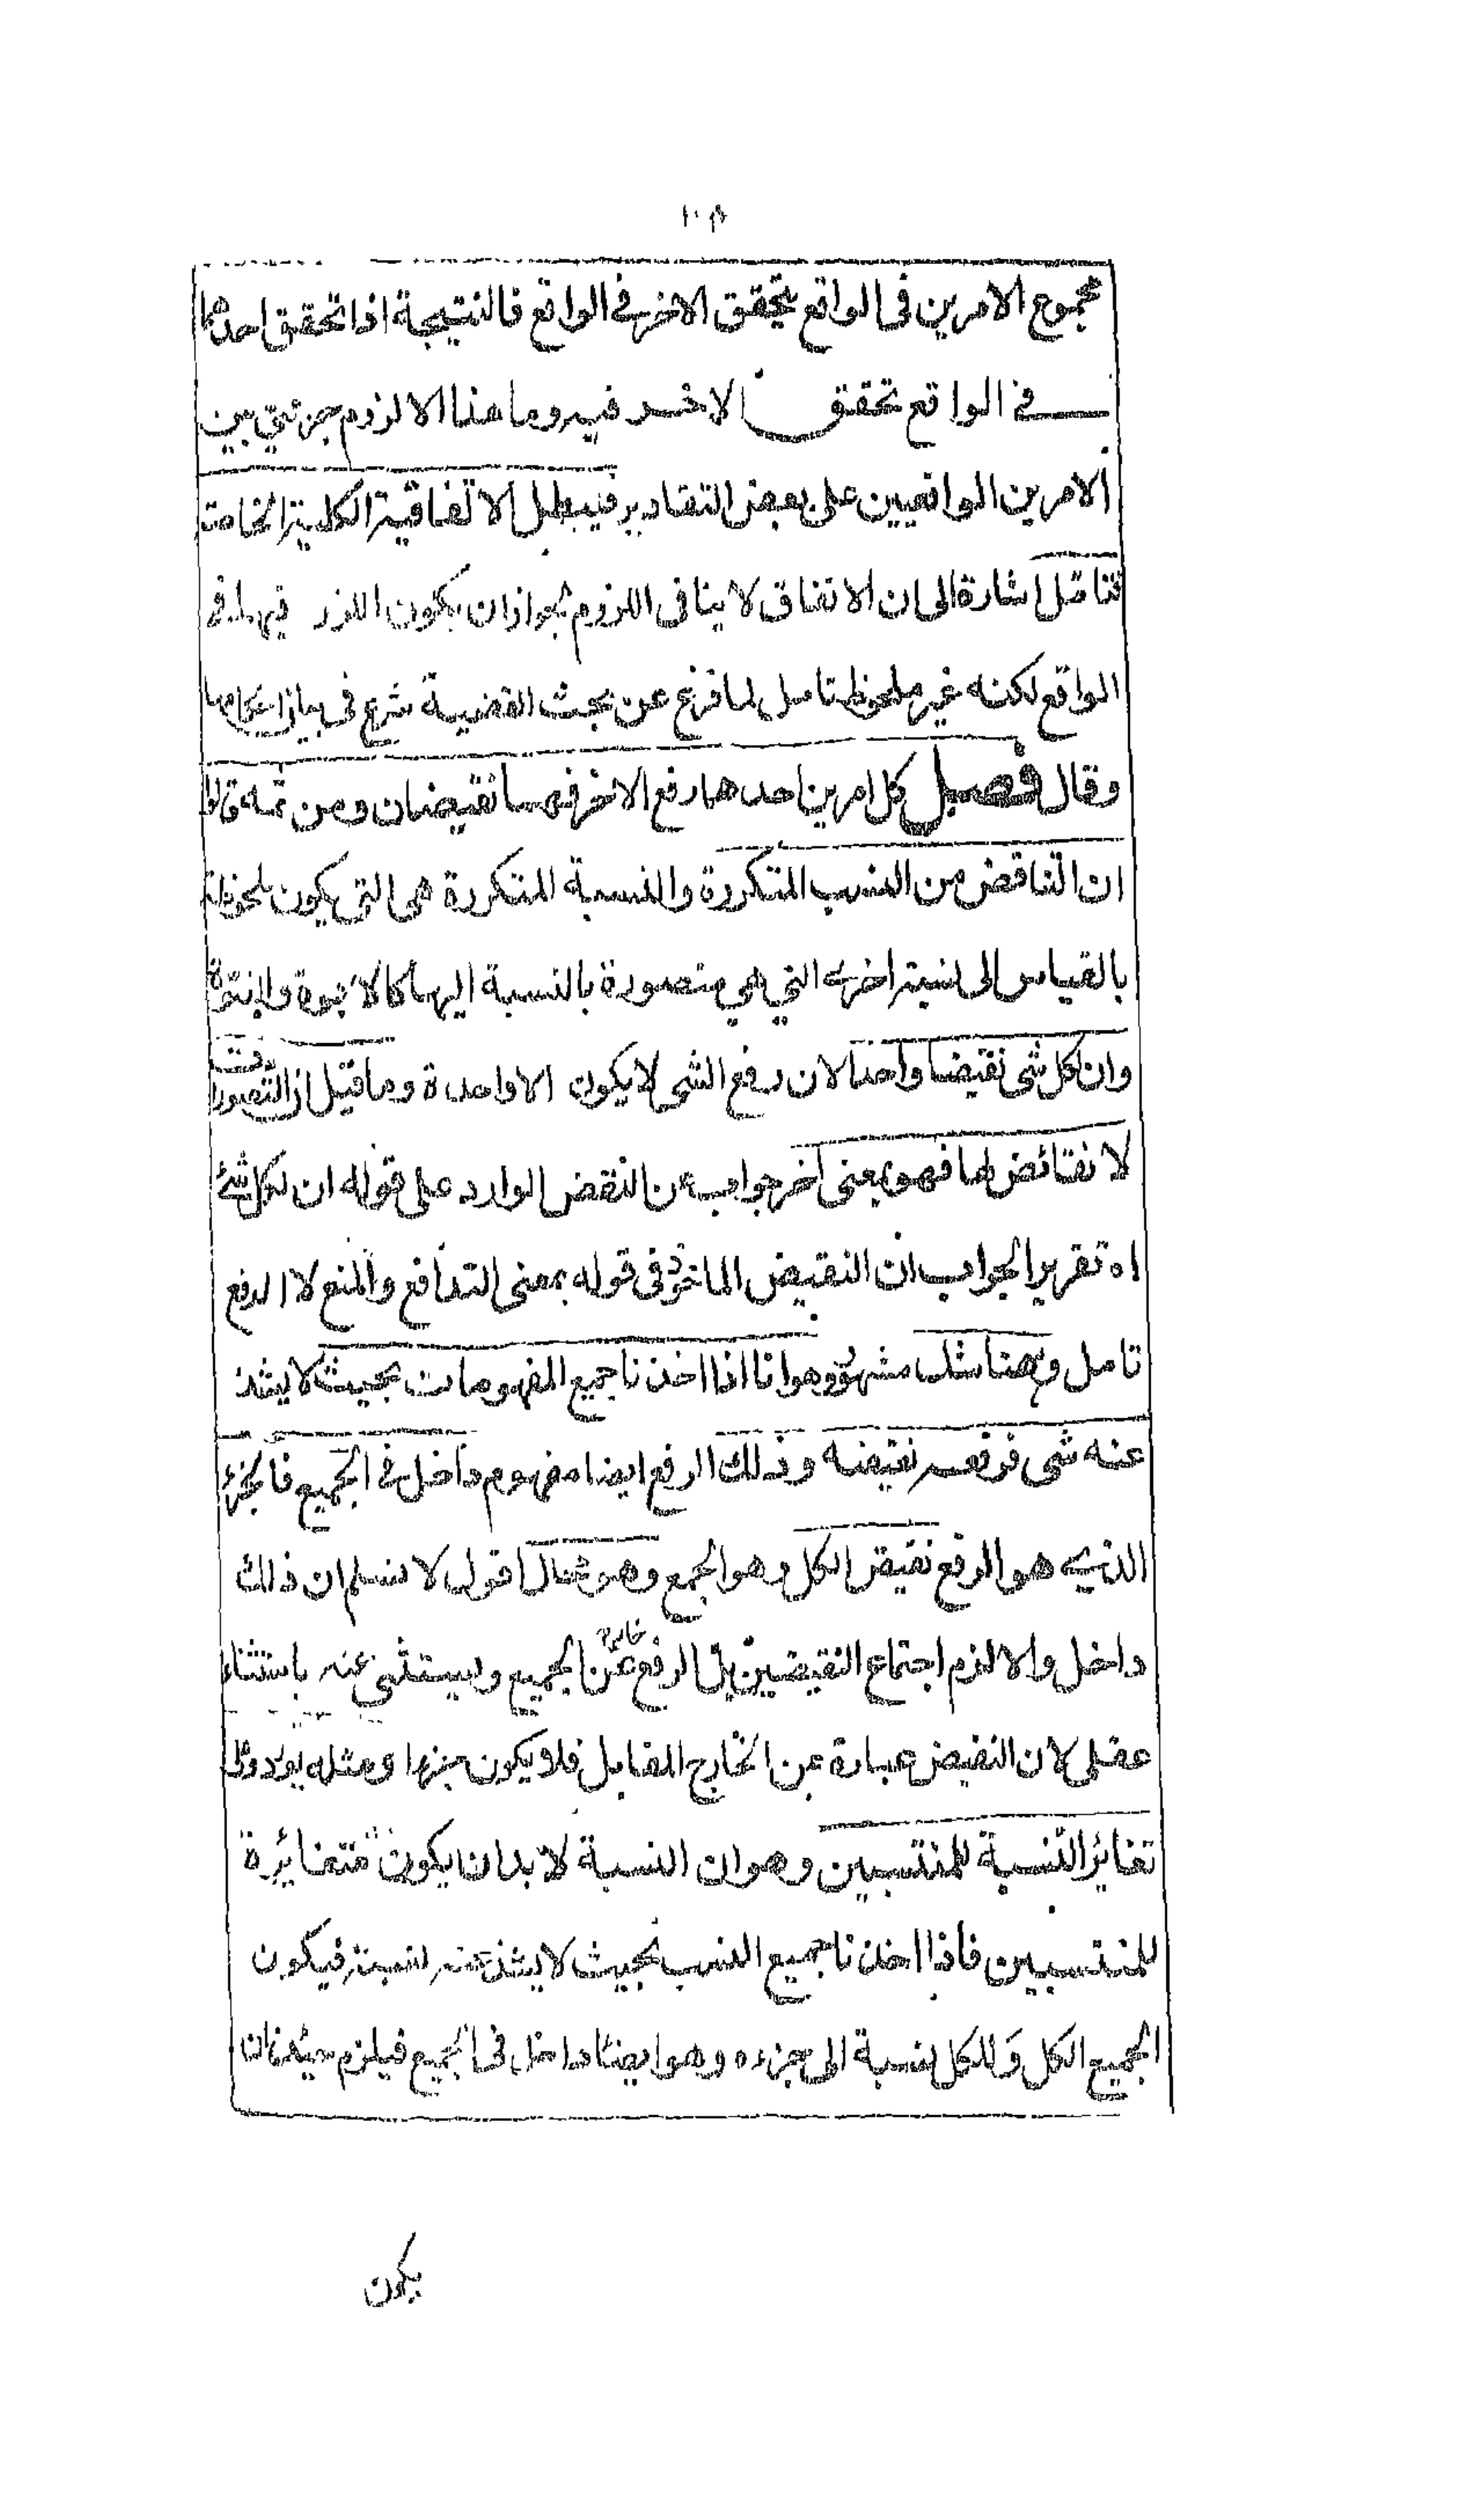 ١٠٥
مجموع الامرين فى الواقع يتحقق الاخر فى الواقع فالنتيجة اذا تحقق احدهما
فى الواقع تحقق الاخر فيه وما هذا الا لزوم جزئى بين
الامرين الواقعيين على بعض التقادير فيبطل الاتفاقية الكلية الخاصة
فتامل اشارة الى ان الاتفاق لا ينافى اللزوم لجواز ان يكون اللزو فيهما فى
الواقع لكنه غير ملحوظ تامل لما فرغ عن بحث القضية شرع فى بيان احكامها
وقال فصل كل امرين احدهما رفع الاخر فهما نقيضان ومن ثمه قالوا
ان التناقض من النسب المتكررة والنسبة المتكررة هى التى يكون ملحوظة
بالقياس الى نسبة اخرى التى هى متصورة بالنسبة اليها كالابوة والابنوة
وان لكل شى نقيضا واحدا لان رفع الشى لا يكون الا واحدة وما قيل ان التصورات
لا نقائض لها فهو بمعنى اخر جواب عن النقض الوارد على قوله ان لكل شئ
اه تقرير الجواب ان النقيض الماخوذ فى قوله بمعنى التدافع والمنع لا الرفع
تامل وههنا شك مشهور وهو انا اذا اخذنا جميع المفهومات بحيث لا يشذ
عنه شى فرفعه نقيضه وذلك الرفع ايضا مفهوم داخل فى الجميع فالجزء
الذى هو الرفع نقيض الكل وهو الجمع وهو محال اقول لا نسلم ان ذلك
داخل والا لزم اجتماع النقيضين بل الرفع خارج عن الجميع ويستثنى عنه باستثناء
عقلى لان النقيض عبارة عن الخارج المقابل فلا يكون جزءا ومثله يورد على
تغائر النسبة للمنتسبين وهو ان النسبة لا بد ان يكون متغائرة
للمنتسبين فاذا اخذنا جميع النسب بحيث لا يشذ عنه نسبة فيكون
الجميع الكل وللكل نسبة الى جزءه وهو ايضا داخل فى الجميع فيلزم حينئذ ان
يكون